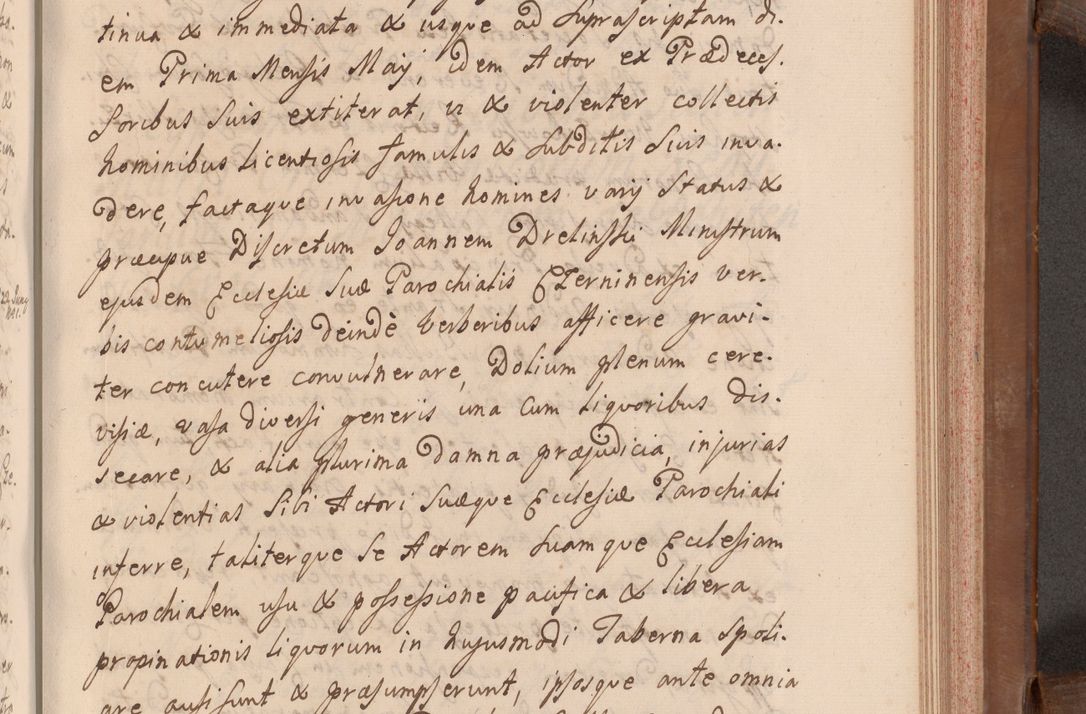 tinua & immediata & usque ad supra scriptam di.
em Prima Mensis Maij, idem Actor ex Prædeces.
soribus suis extiterat, vi & violenter collectis
hominibus licentiosis famulis & subditis suis inva.
dere, factaque invasione homines varij status &
præcipue Discretum Joannem Drelinski Ministrum
ejusdem Ecclesiæ suæ Parochialis Czerninensis ver.
bis contumeliosis deindè verberibus afficere gravi.
ter concutere convulnerare, Dolium plenum cere.
visiæ, vasa diversi generis una cum liquoribus dis.
secare, & alia plurima damna præjudicia, injurias
& violentias sibi Actori suæque Ecclesiæ Parochiali
inferre, taliterque se Actorem suamque Ecclesiam
Parochialem usu & possessione pacifica & libera
propinationis liquorum in hujusmodi Taberna spoli.
are ausi sunt & præsumpserunt, ipsosque ante omnia